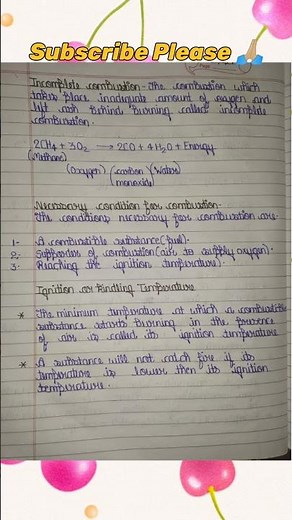 Subscribe Please 🙏
Incomplete combustion - The combustion which
takes place inadequate amount of oxygen and
left ash behind burning called incomplete
combustion.
2CH4 + 3O2 → 2CO + 4H2O + Energy
(Methane)
(Oxygen) (carbon monoxide) (Water)
Necessary condition for combustion-
The conditions necessary for combustion are-
1- A combustible substance (fuel).
2- Supporter of combustion (air to supply oxygen).
3- Reaching the ignition temperature).
Ignition or Kindling Temperature
* The minimum temperature at which a combustible
substance starts burning in the presence
of air is called its ignition temperature
* A substance will not catch fire if its
temperature is lower then its ignition
temperature.